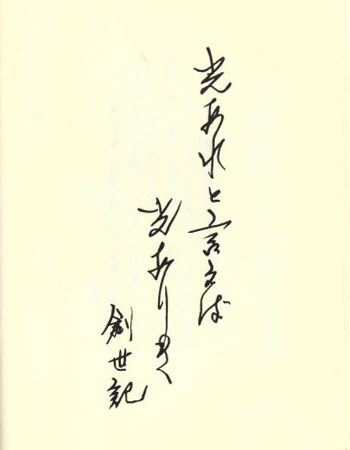 光あれと言えば
光ありき
創世記